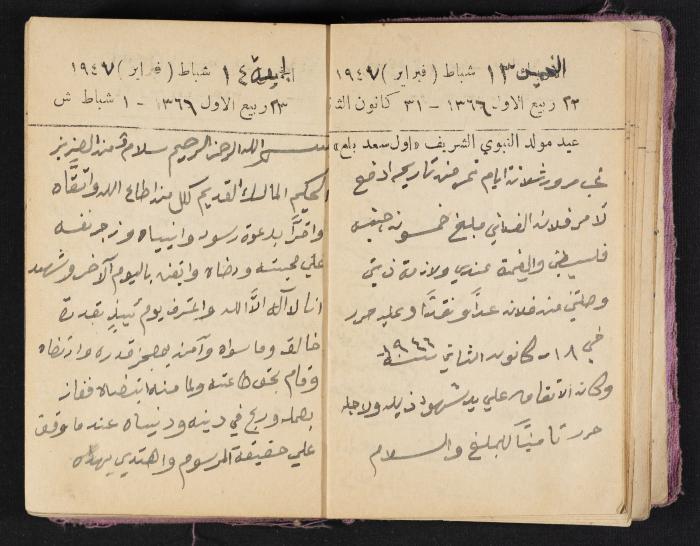 الخميس ١٣ شباط (فبراير) ١٩٤٧
٢٢ ربيع الاول ١٣٦٦ - ٣١ كانون الثا
عيد مولد النبوي الشريف «اول سعد بلع»
غب مرور ثلاثة ايام تمر من تاريخه ادفع
لأمر فلان الفلاني مبلغ خمسون جنيه
فلسطيني والقيمة عندي ولازمة ذمتي
وصلتني من فلان عداً ونقداً وعليه حرر
في ١٨ - كانون الثاني سنة ١٩٤٦
وكان الاتفاق على يد شهود ذيله ولاجله
حرر تاميناً للمبلغ والسلام
الجمعة ١٤ شباط (فبراير) ١٩٤٧
٢٣ ربيع الاول ١٣٦٦ - ١ شباط ش
بسم الله الرحمن الرحيم سلام من العزيز
الحكيم المالك القديم لكل من اطاع الله واتقاه
واقرّ بدعوة رسوله وانبياه وزجر نفسه
على محبته ورضاه وايقن باليوم الآخر وشهد
ان لا اله الّا الله واعترف يوم بقدرة
خالقه وما سواه وآمن قدره وارتضاه
وقام بحق طاعته ولما منه اقتضاه ففاز
بعمله وربح في دينه ودنياه عندما وقف
على حقيقة المرسوم واهتدى بهداه